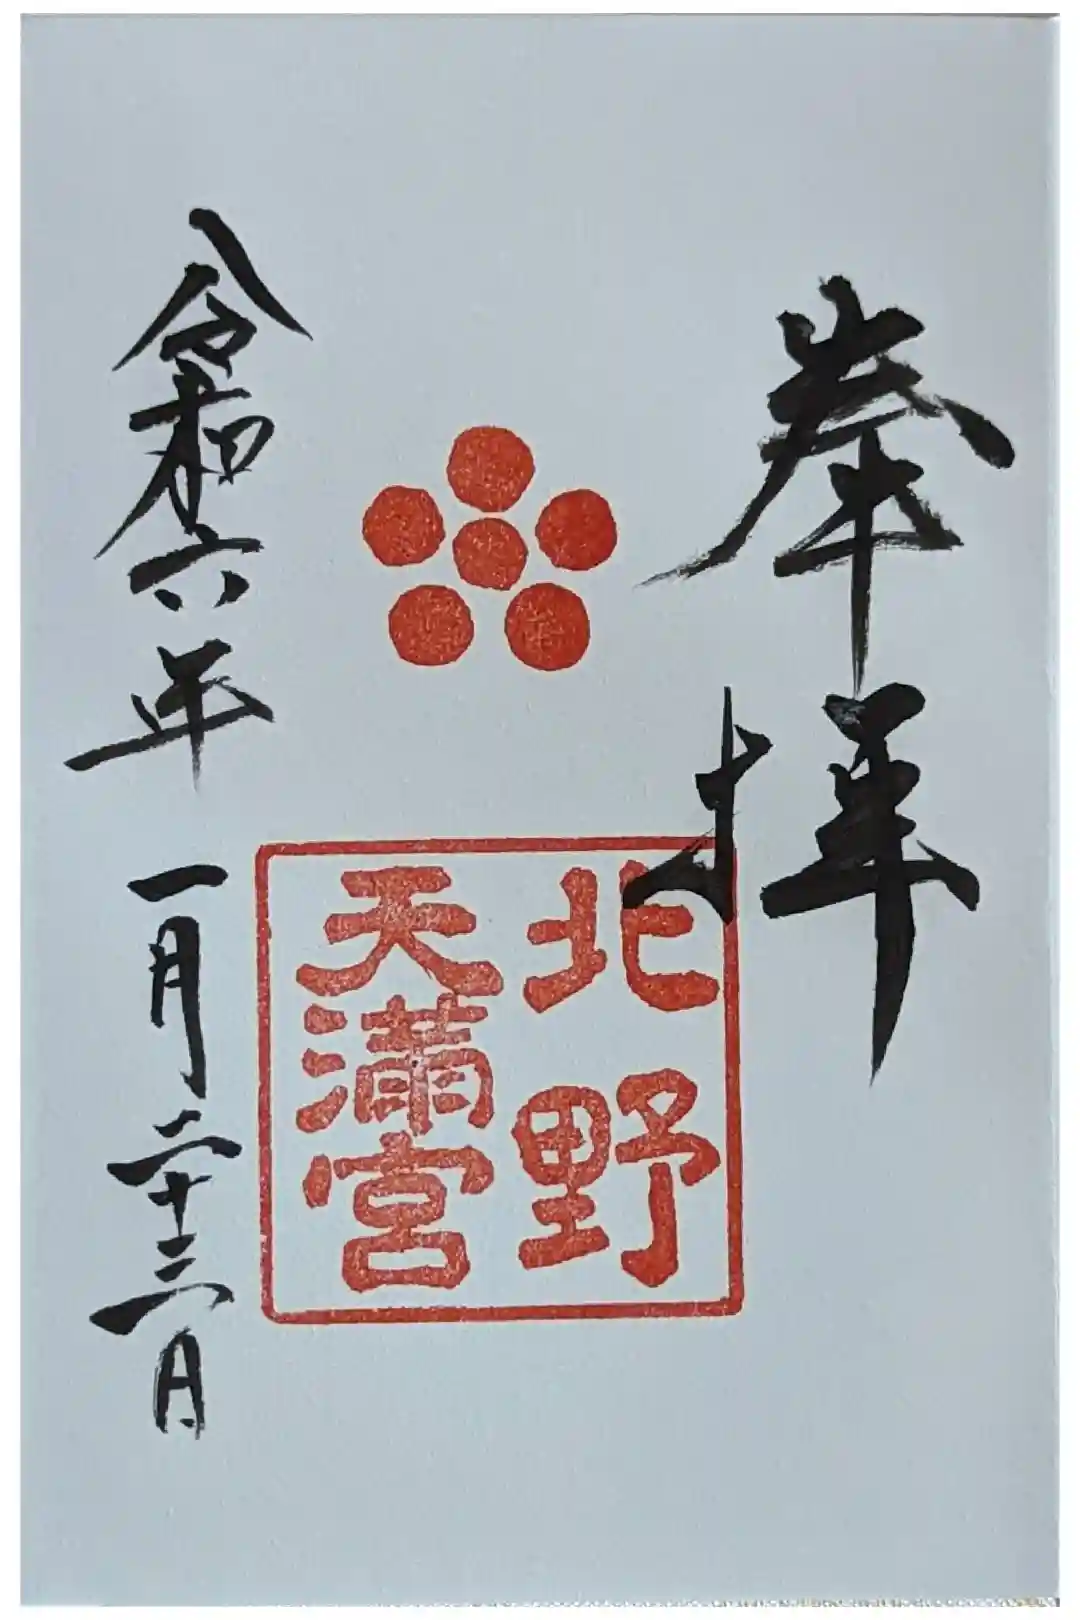 奉拝
北野
天満宮
令和六年一月二十三日